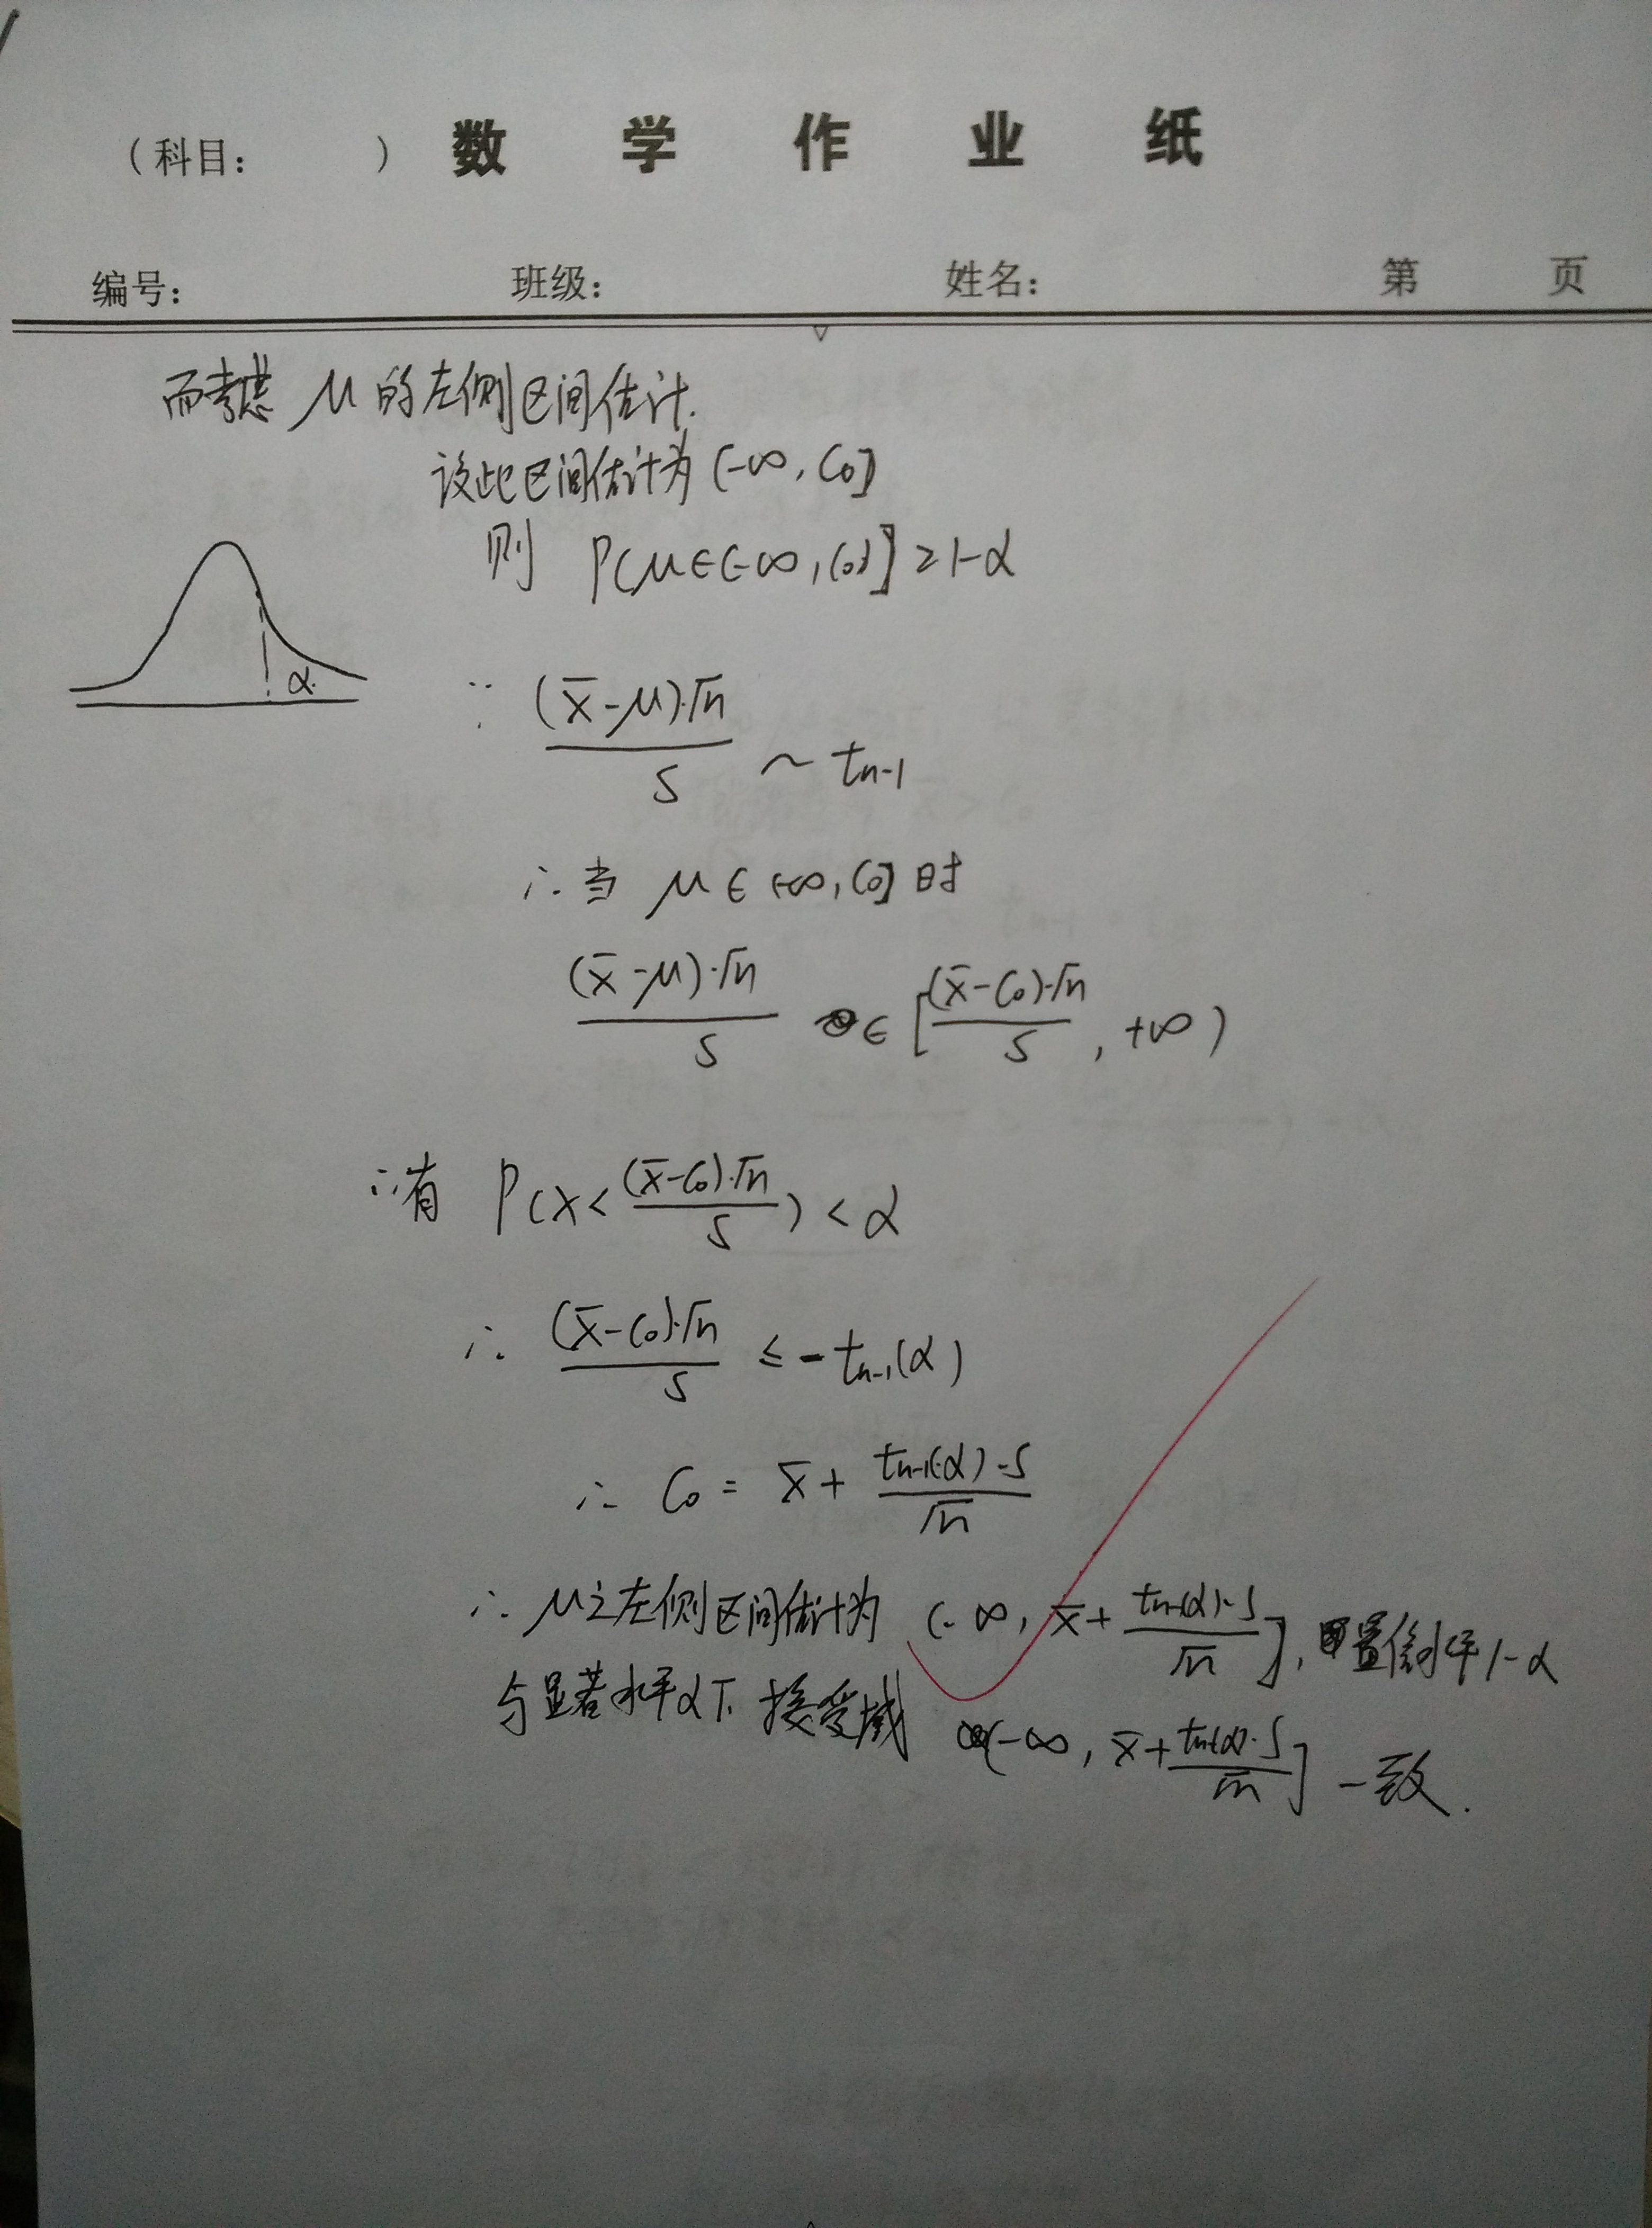 (科目: ) 数学作业纸
编号: 班级: 姓名: 第 页
而考虑 μ 的左侧区间估计.
设此区间估计为 (-∞, C₀]
则 P(μ∈(-∞, C₀]] ≥ 1-α
α.
∵ (x̄-μ)·√n / S ~ tn-1
∴ 当 μ ∈ (-∞, C₀] 时
(x̄-μ)·√n / S ∈ [(x̄-C₀)·√n / S, +∞)
∴有 P(X < (x̄-C₀)·√n / S) < α
∴ (x̄-C₀)·√n / S ≤ -tn-1(α)
∴ C₀ = x̄ + tn-1(α)·S / √n
∴ μ之左侧区间估计为 (-∞, x̄ + tn-1(α)·S / √n], 置信水平 1-α
与显著水平α下 接受域 (-∞, x̄ + tn-1(α)·S / √n] 一致.